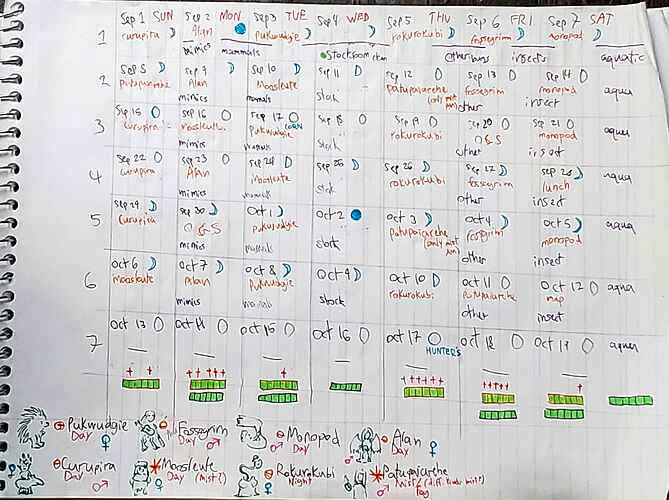 Sep 1 SUN Sep 2 MON Sep 3 TUE Sep 4 WED Sep 5 THU Sep 6 FRI Sep 7 SAT
1 curupira Alan pukwudgie rokurokubi fossegrim monopod
mimics mammals stockroom others insects aquatic
Sep 8 Sep 9 Sep 10 Sep 11 Sep 12 Sep 13 Sep 14
2 patupaiarehe Alan Moosleute stock patupaiarehe fossegrim monopod aqua
mimics other insect
Sep 15 Sep 16 Sep 17 CORN Sep 18 Sep 19 Sep 20 Sep 21
3 Curupira moosleute pukwudgie stock rokurokubi O&S monopod aqua
mimics mammals other insect
Sep 22 Sep 23 Sep 24 Sep 25 Sep 26 Sep 27 Sep 28
4 Curupira Alan moosleute stock rokurokubi fossegrim lunch aqua
mimics mammals other insect
Sep 29 Sep 30 Oct 1 Oct 2 Oct 3 Oct 4 Oct 5
5 Curupira O&S pukwudgie stock Patupaiarehe fossegrim monopod aqua
mimics mammals (only mist other insect
Oct 6 Oct 7 Oct 8 Oct 9 Oct 10 Oct 11 Oct 12
6 moosleute Alan pukwudgie stock rokurokubi patupaiarehe nap aqua
mimics other insect
7 Oct 13 Oct 14 Oct 15 Oct 16 Oct 17 Oct 18 Oct 19 aqua
HUNTER'S
Pukwudgie Fossegrim Monopod Alan
Day ♀ Day ♂ Day ♂ Day ♀
Curupira Moosleute Rokurokubi Patupaiarehe
Day ♂ Day (mist?) Night Mist? (diff. kinds mist?)
Fog